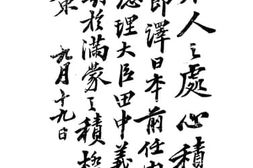 人之處心積
即譯日本前任
總理大臣田中義
對於滿蒙之積極
九月十九日